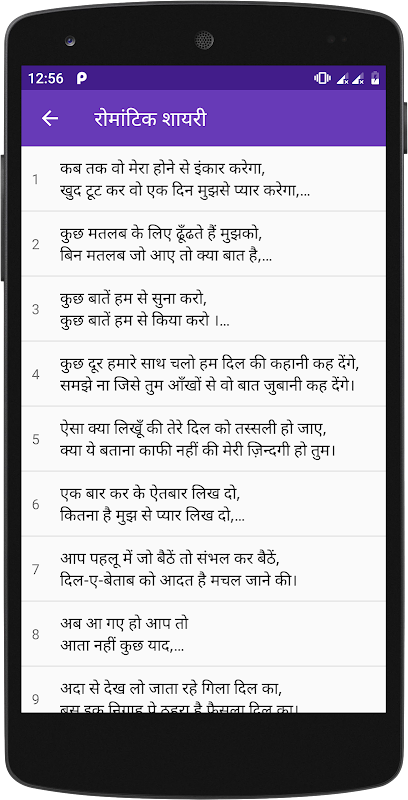 12:56
रोमांटिक शायरी
1
कब तक वो मेरा होने से इंकार करेगा,
खुद टूट कर वो एक दिन मुझसे प्यार करेगा,...
2
कुछ मतलब के लिए ढूँढते हैं मुझको,
बिन मतलब जो आए तो क्या बात है,...
3
कुछ बातें हम से सुना करो,
कुछ बातें हम से किया करो ।...
4
कुछ दूर हमारे साथ चलो हम दिल की कहानी कह देंगे,
समझे ना जिसे तुम आँखों से वो बात जुबानी कह देंगे।
5
ऐसा क्या लिखूँ की तेरे दिल को तस्सली हो जाए,
क्या ये बताना काफी नहीं की मेरी ज़िन्दगी हो तुम।
6
एक बार कर के ऐतबार लिख दो,
कितना है मुझ से प्यार लिख दो,...
7
आप पहलू में जो बैठें तो संभल कर बैठें,
दिल-ए-बेताब को आदत है मचल जाने की।
8
अब आ गए हो आप तो
आता नहीं कुछ याद,...
9
अदा से देख लो जाता रहे गिला दिल का,
बस इक निगाह पे ठहरा है फ़ैसला दिल का।